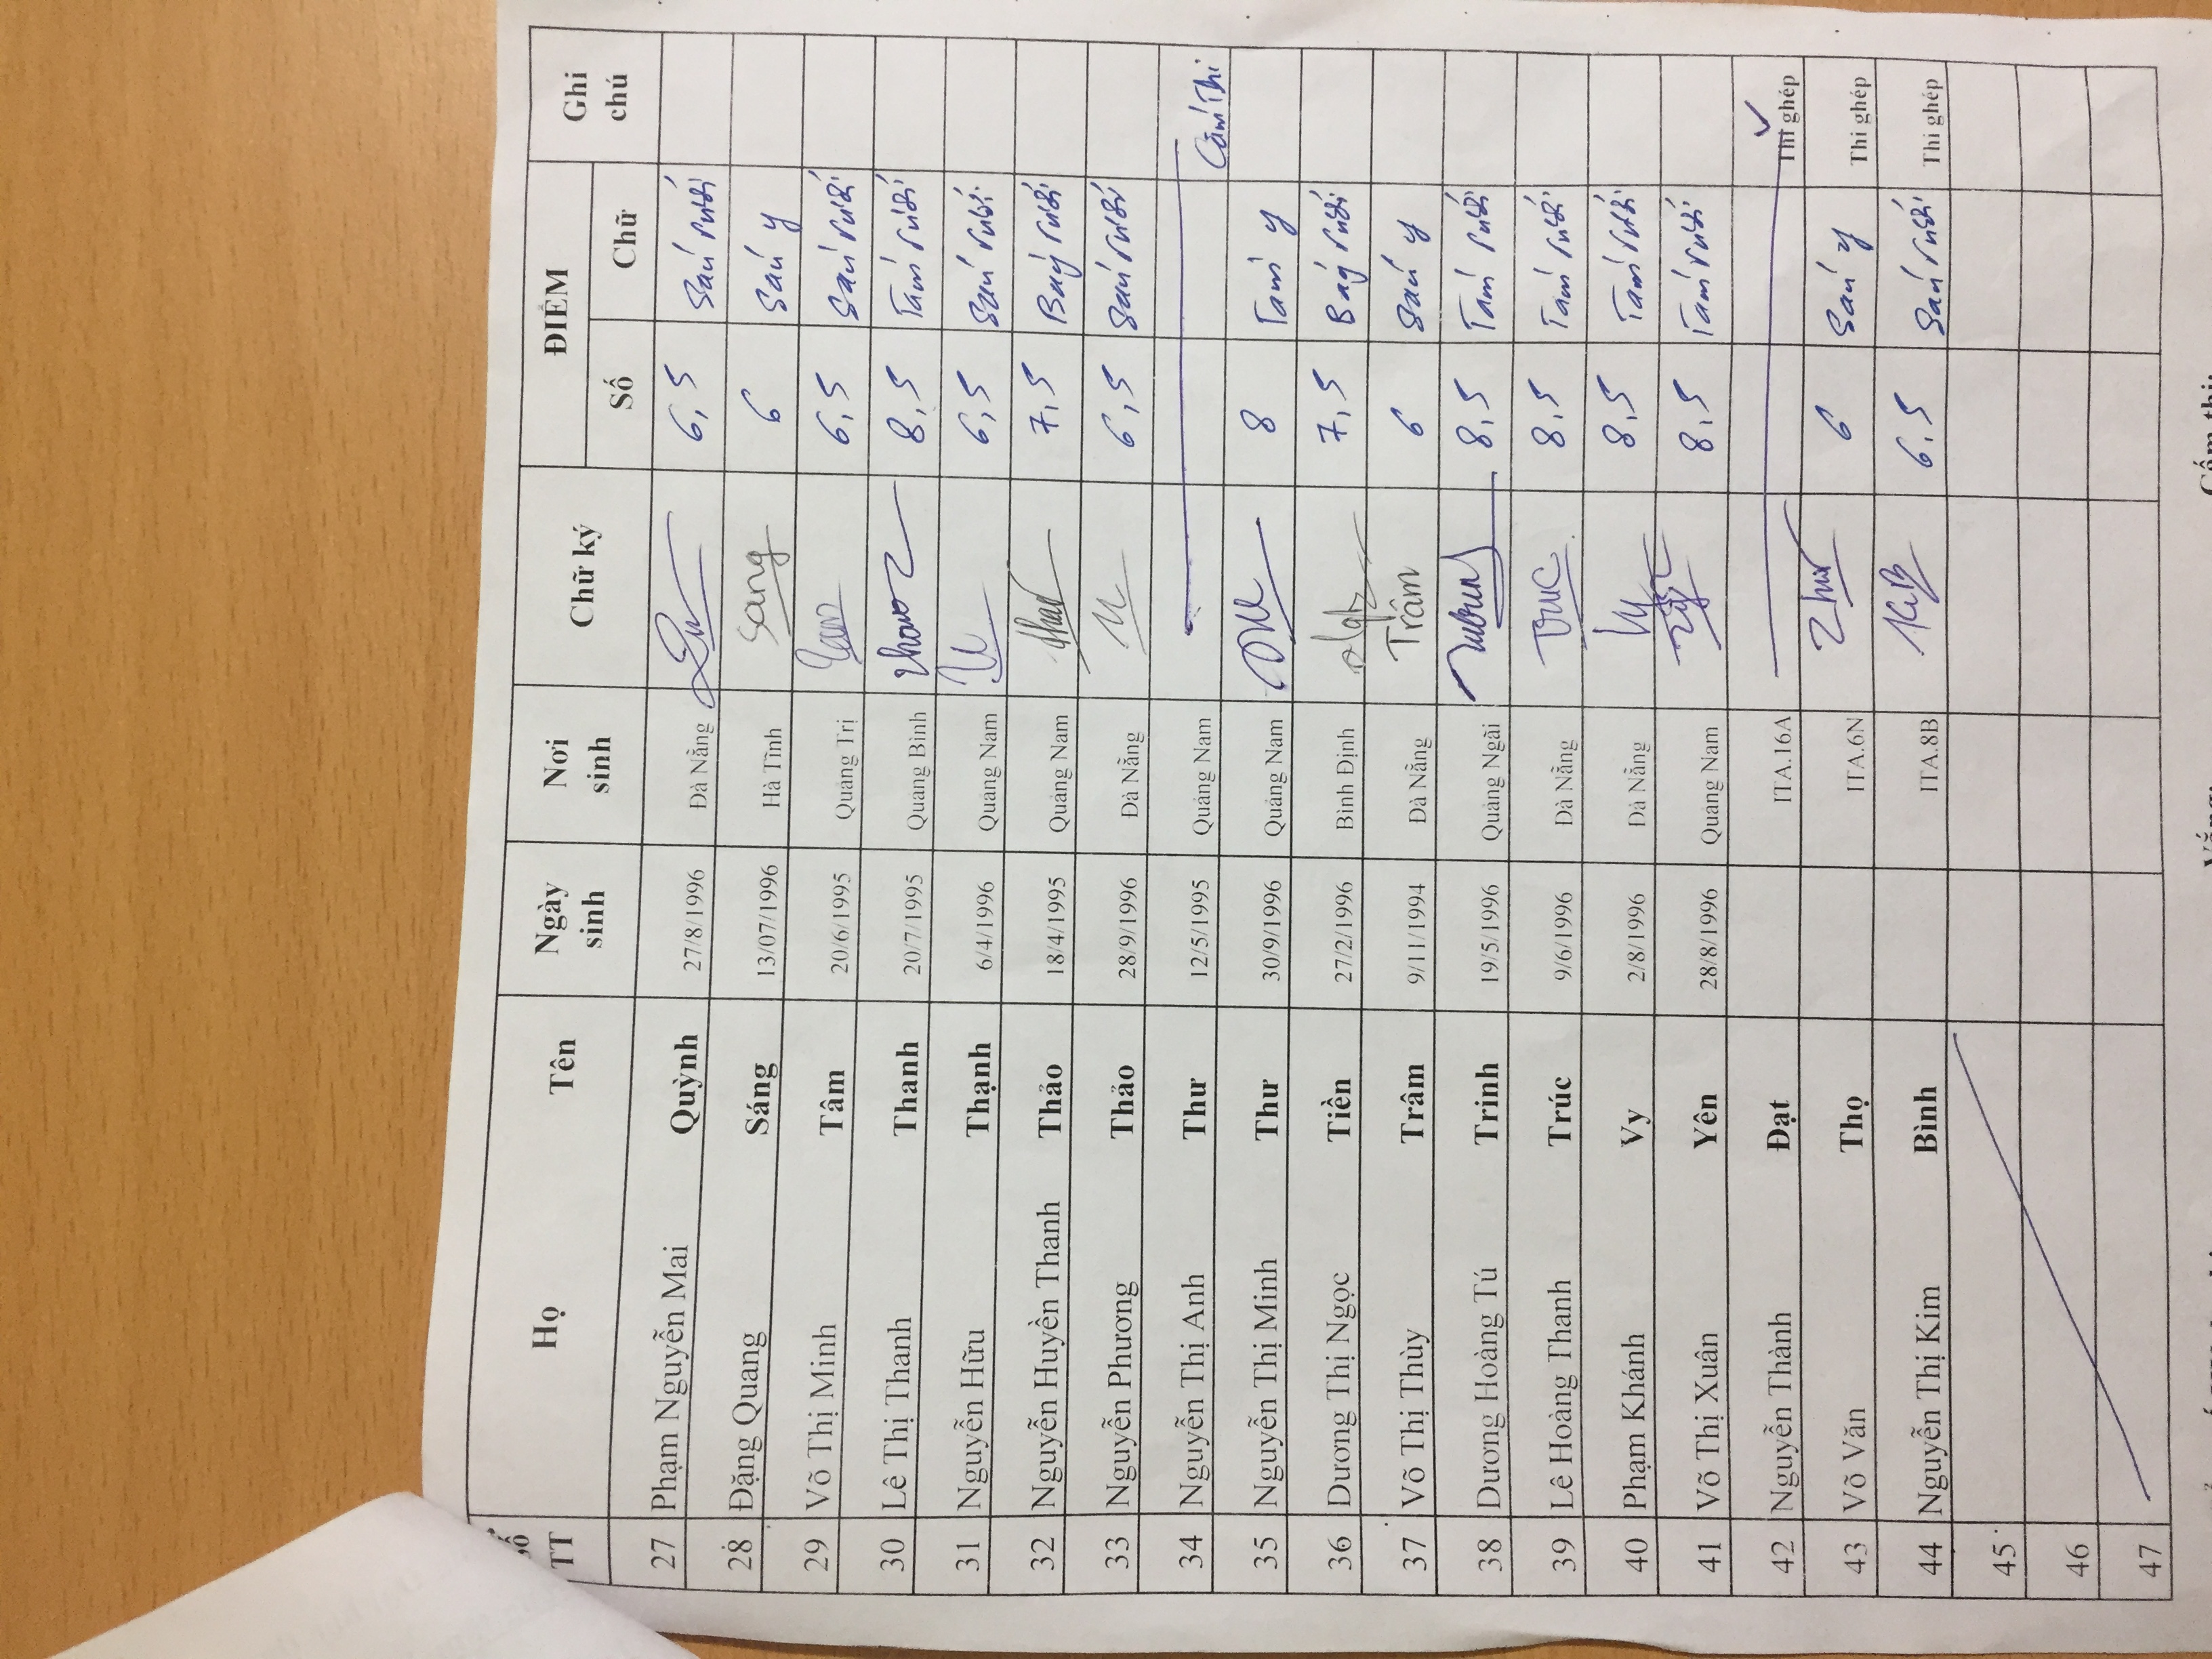 TT Họ Tên Ngày sinh Nơi sinh Chữ ký ĐIỂM Ghi chú
Số Chữ
27 Phạm Nguyễn Mai Quỳnh 27/8/1996 Đà Nẵng 6,5 Sáu rưỡi
28 Đặng Quang Sáng 13/07/1996 Hà Tĩnh Sang 6 Sáu y
29 Võ Thị Minh Tâm 20/6/1995 Quảng Trị 6,5 Sáu rưỡi
30 Lê Thị Thanh Thanh 20/7/1995 Quảng Bình 8,5 Tám rưỡi
31 Nguyễn Hữu Thạnh 6/4/1996 Quảng Nam 6,5 Sáu rưỡi
32 Nguyễn Huyền Thanh Thảo 18/4/1995 Quảng Nam 7,5 Bảy rưỡi
33 Nguyễn Phương Thảo 28/9/1996 Đà Nẵng 6,5 Sáu rưỡi
34 Nguyễn Thị Anh Thư 12/5/1995 Quảng Nam Cấm thi
35 Nguyễn Thị Minh Thư 30/9/1996 Quảng Nam 8 Tám y
36 Dương Thị Ngọc Tiền 27/2/1996 Bình Định 7,5 Bảy rưỡi
37 Võ Thị Thùy Trâm 9/11/1994 Đà Nẵng Trâm 6 Sáu y
38 Dương Hoàng Tú Trinh 19/5/1996 Quảng Ngãi 8,5 Tám rưỡi
39 Lê Hoàng Thanh Trúc 9/6/1996 Đà Nẵng Truc 8,5 Tám rưỡi
40 Phạm Khánh Vy 2/8/1996 Đà Nẵng Vy 8,5 Tám rưỡi
41 Võ Thị Xuân Yên 28/8/1996 Quảng Nam 8,5 Tám rưỡi
42 Nguyễn Thành Đạt ITA.16A Thi ghép
43 Võ Văn Thọ ITA.6N 6 Sáu y Thi ghép
44 Nguyễn Thị Kim Bình ITA.8B 6,5 Sáu rưỡi Thi ghép
45
46
47
Cấm thi: